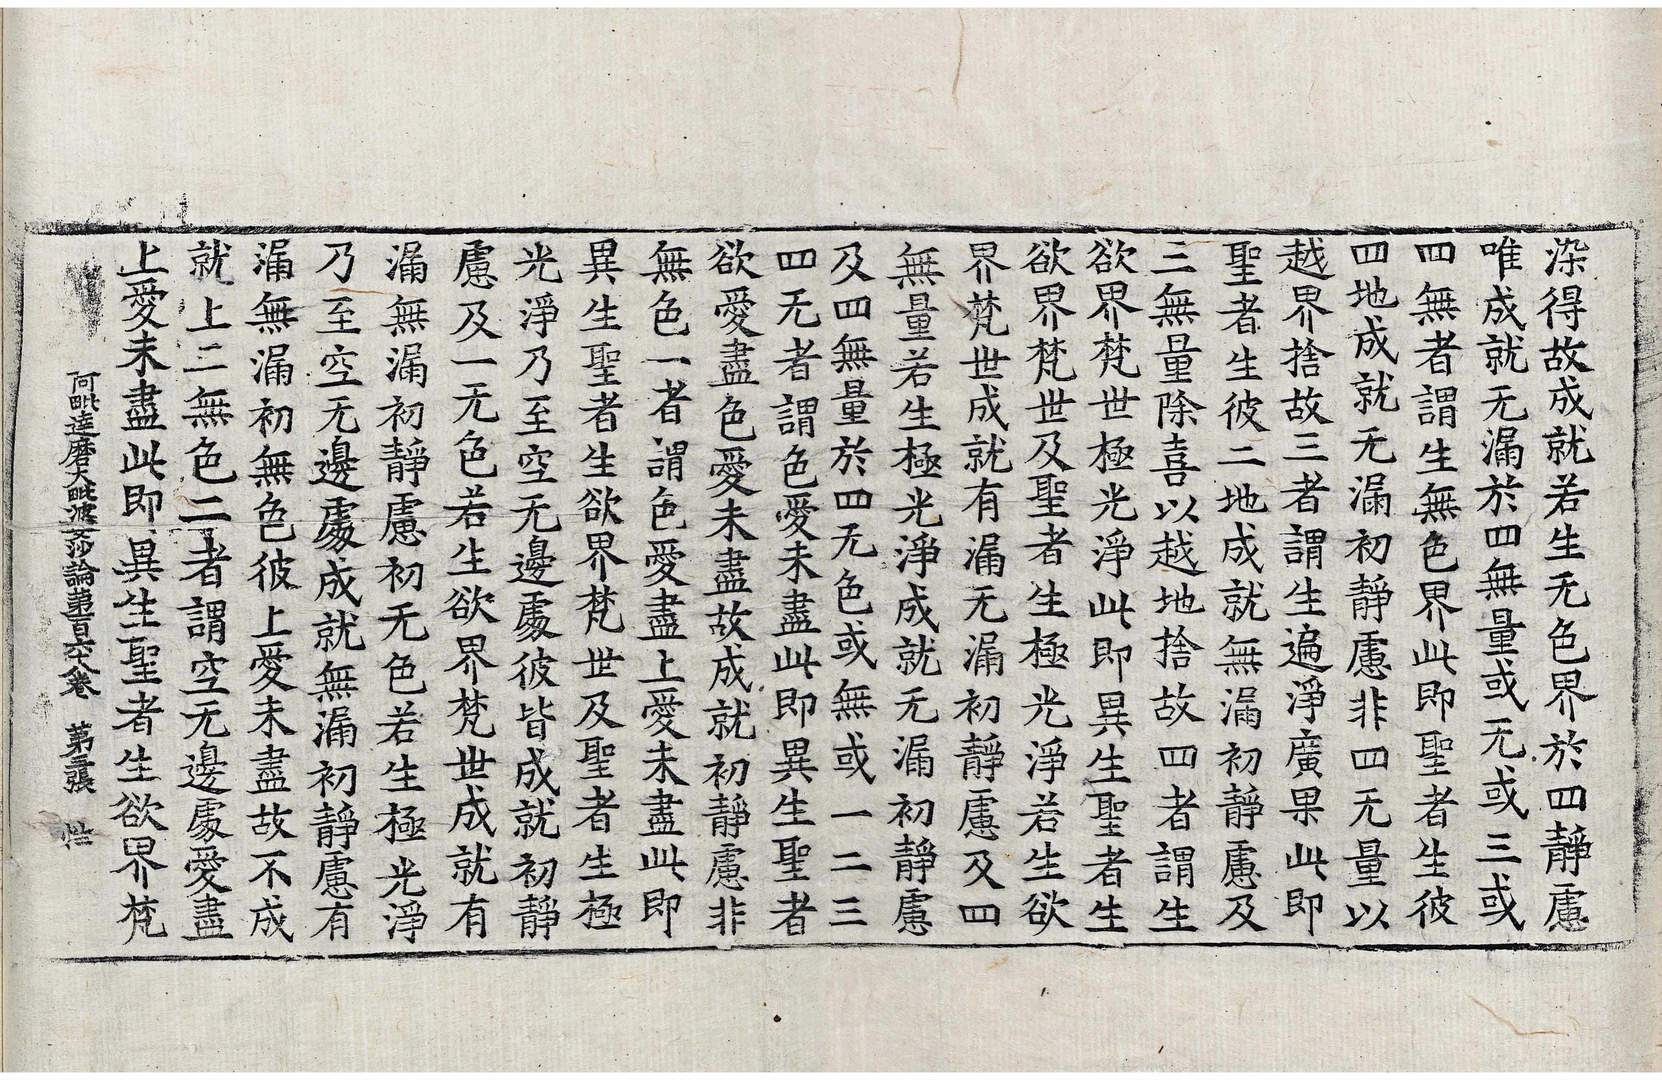 染得故成就若生无色界於四靜慮
唯成就无漏於四無量或无或三或
四無者謂生無色界此即聖者生彼
四地成就无漏初靜慮非四无量以
越界捨故三者謂生遍淨廣果此即
聖者生彼二地成就無漏初靜慮及
三無量除喜以越地捨故四者謂生
欲界梵世極光淨此即異生聖者生
欲界梵世及聖者生極光淨若生欲
界梵世成就有漏无漏初靜慮及四
無量若生極光淨成就无漏初靜慮
及四無量於四无色或無或一二三
四无者謂色愛未盡此即異生聖者
欲愛盡色愛未盡故成就初靜慮非
無色一者謂色愛盡上愛未盡此即
異生聖者生欲界梵世及聖者生極
光淨乃至空无邊處彼皆成就初靜
慮及一无色若生欲界梵世成就有
漏無漏初靜慮初无色若生極光淨
乃至空无邊處成就無漏初靜慮有
漏無漏初無色彼上愛未盡故不成
就上二無色二者謂空无邊處愛盡
上愛未盡此即異生聖者生欲界梵
阿毗達磨大毗婆沙論第百六八卷 第三張 性